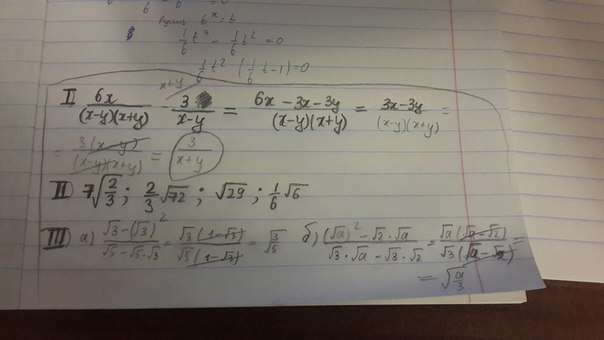 6 6
6ˣ = t
1/6 t⁴ - 1/6 t² = 0
1/6 t² (1/6 t - 1) = 0
x+y
I) 6x/((x-y)(x+y)) - 3/(x-y) = (6x - 3x - 3y)/((x-y)(x+y)) = (3x-3y)/((x-y)(x+y)) =
= 3(x-y)/((x-y)(x+y)) = 3/(x+y)
II) 7√(2/3); 2/3 √72; √29; 1/6 √6
III) а) (√3-(√3)²)/(√5-√5·√3) = √3(1-√3)/(√5(1-√3)) = √(3/5) б) ((√a)²-√2·√a)/(√3·√a-√3·√2) = √a(√a-√2)/(√3(√a-√2)) =
= √(a/3)